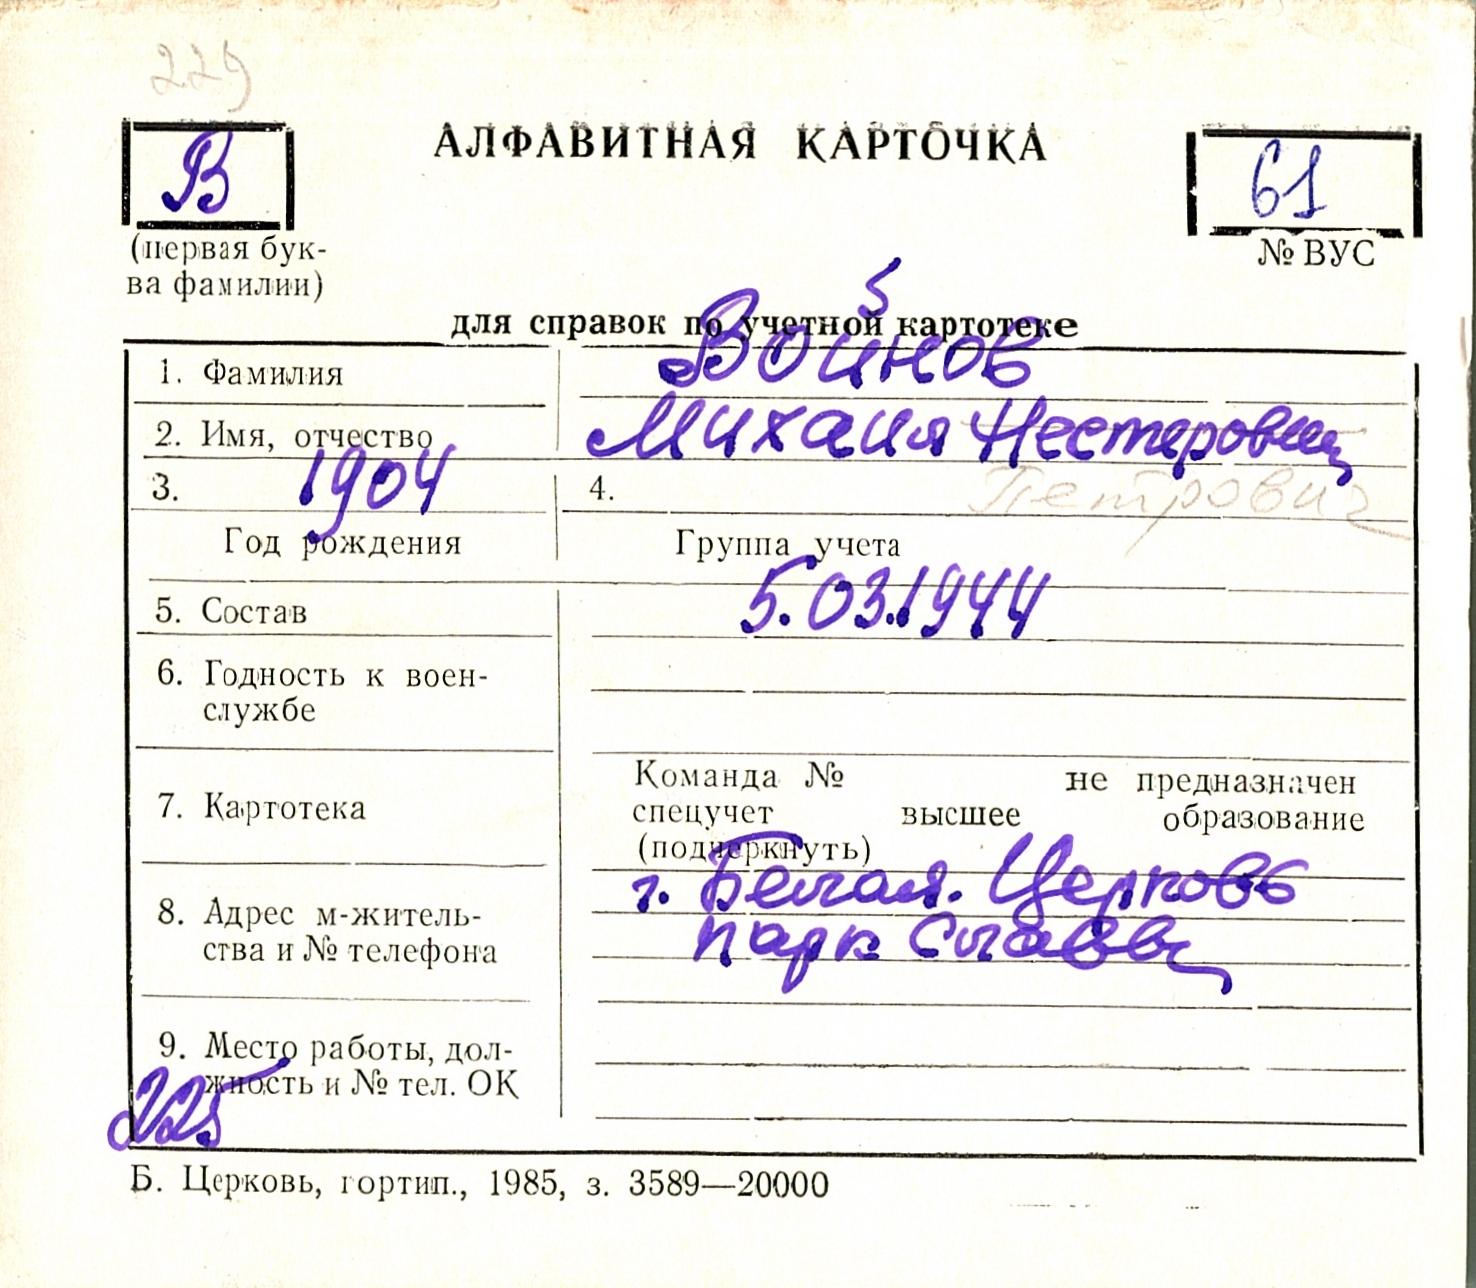 225
В
АЛФАВИТНАЯ КАРТОЧКА
61
(первая бук-
ва фамилии)
№ ВУС
для справок по учетной картотеке
1. Фамилия
Войнов
2. Имя, отчество
Михаил Нестерович
3. 1904
4.
Петрович
Год рождения
Группа учета
5. Состав
5.03.1944
6. Годность к воен-
службе
7. Картотека
Команда № не предназначен
спецучет высшее образование
(подчеркнуть)
8. Адрес м-житель-
ства и № телефона
г. Белая Церковь
парк Славы
9. Место работы, дол-
жность и № тел. ОК
225
Б. Церковь, гортип., 1985, з. 3589—20000